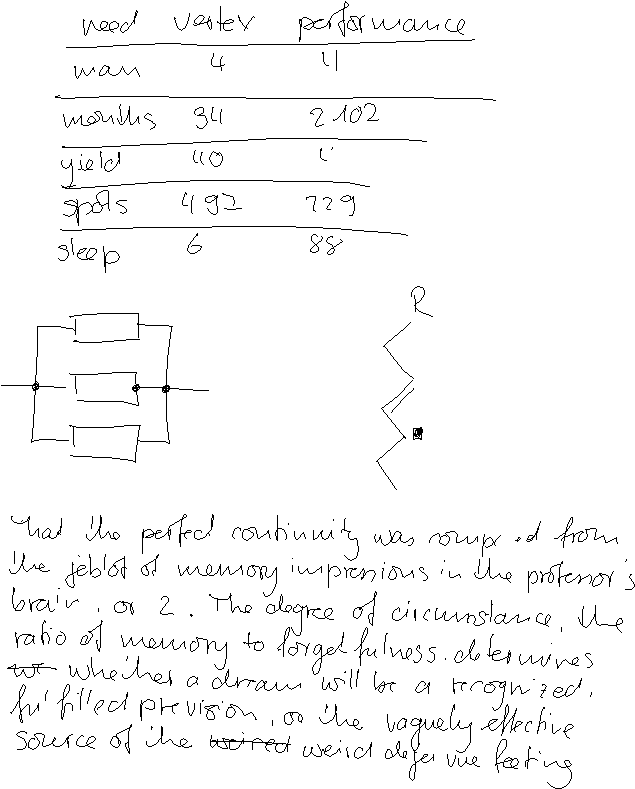 need vertex performance
man 4 4
months 34 2102
yield 40
spots 492 729
sleep 6 88
R
that the perfect continuity was from
the of memory impressions in the professor's
brain, or 2. The degree of circumstance, the
ratio of memory to forgetfulness. determines
whether a dream will be a recognized,
fulfilled prevision, or the vaguely effective
source of the weird deja vue feeting